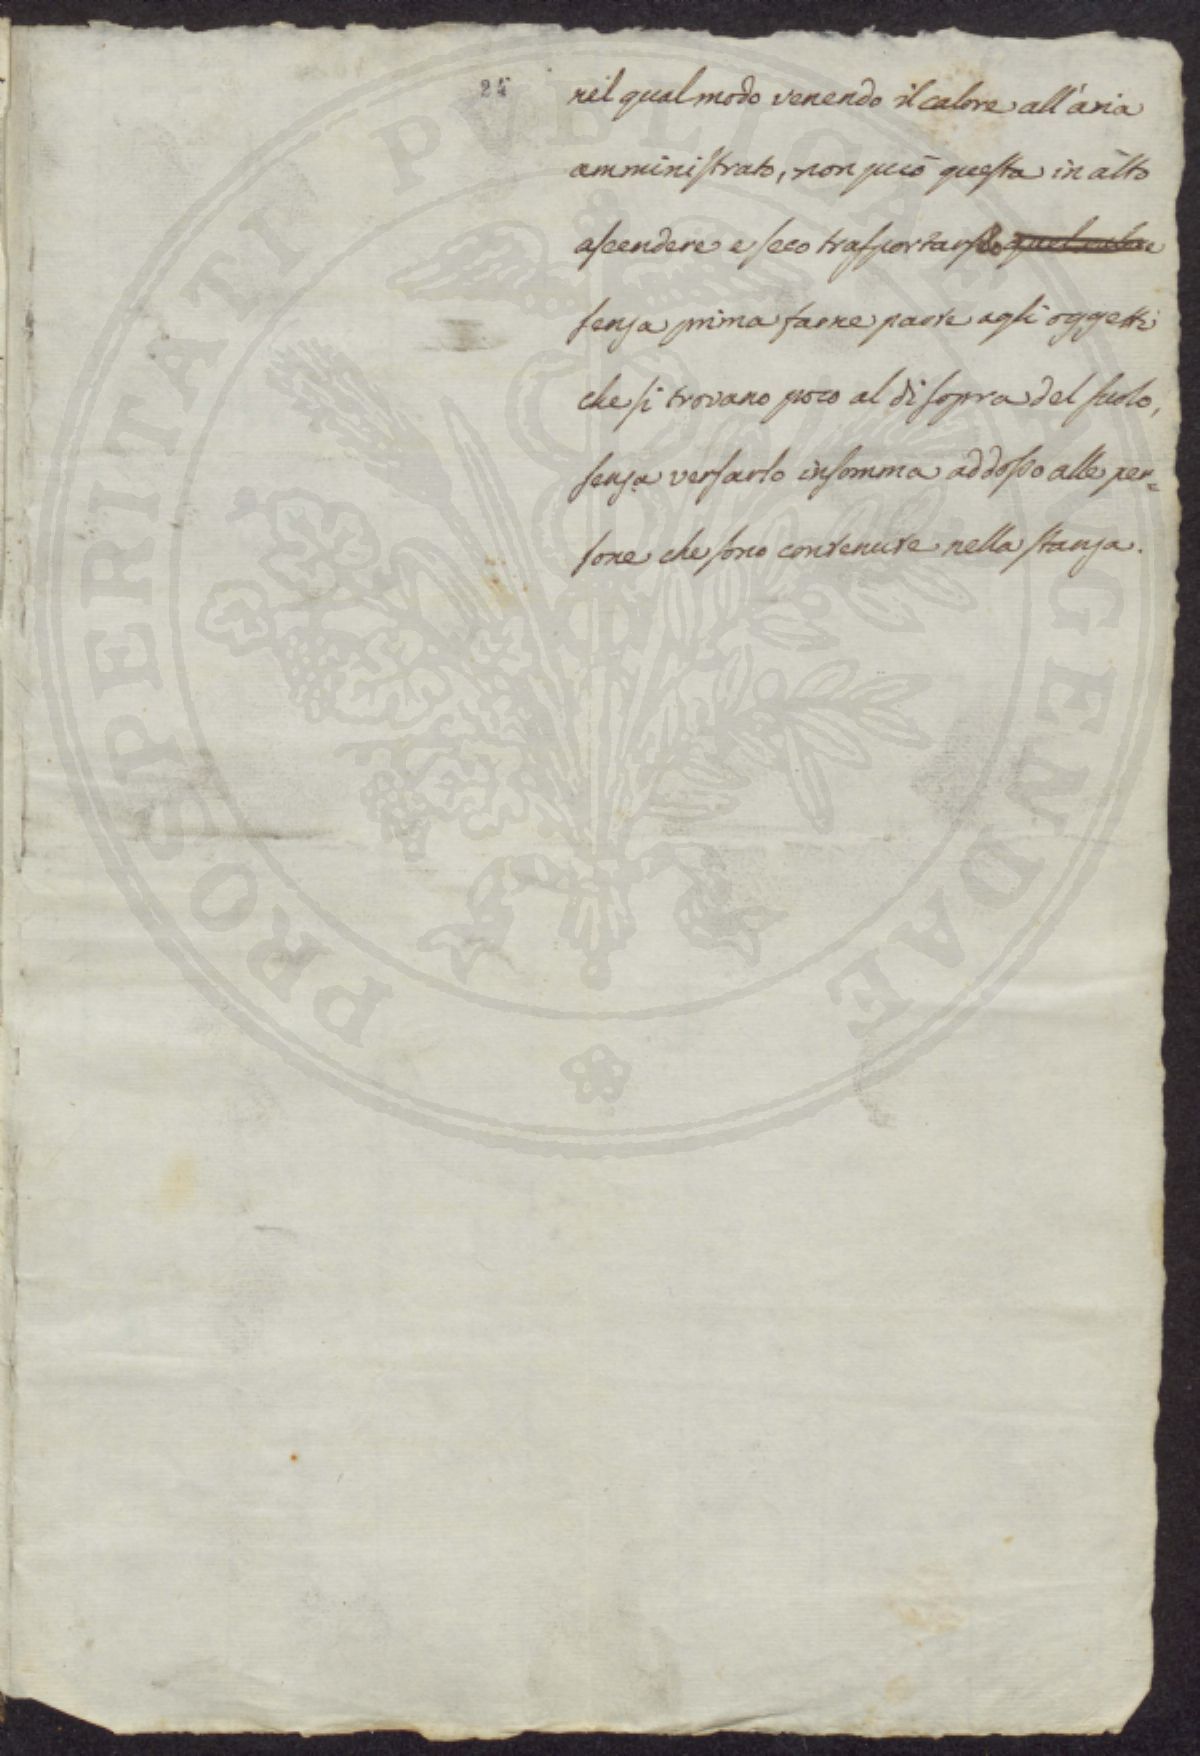 24
nel qual modo venendo il calore all'aria
amministrato, non può questa in alto
ascendere e seco trasportarselo quel calore
senza prima farne parte agli oggetti
che si trovano poco al di sopra del suolo,
senza versarlo insomma addosso alle per=
sone che sono contenute nella stanza.
PROSPERITATI PUBLICAE AUGENDAE